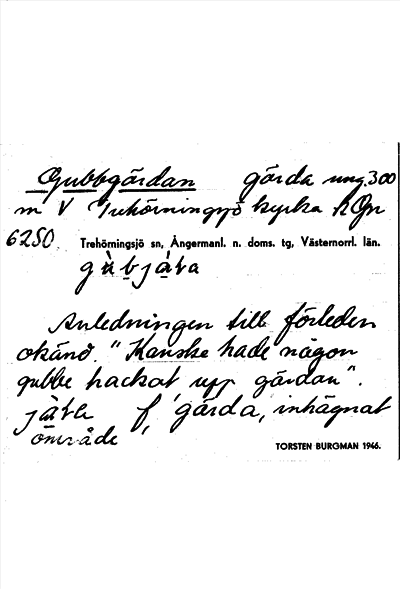 Gubbgärdan gärda ung. 300
m V Trehörningsjö kyrka RGn
6250. Trehörningsjö sn, Ångermanl. n. doms. tg, Västernorrl. län.
Anledningen till förleden
okänd. "Kanske hade någon
gubbe hackat upp gärdan".
f, gärda, inhägnat
område
TORSTEN BURGMAN 1946.